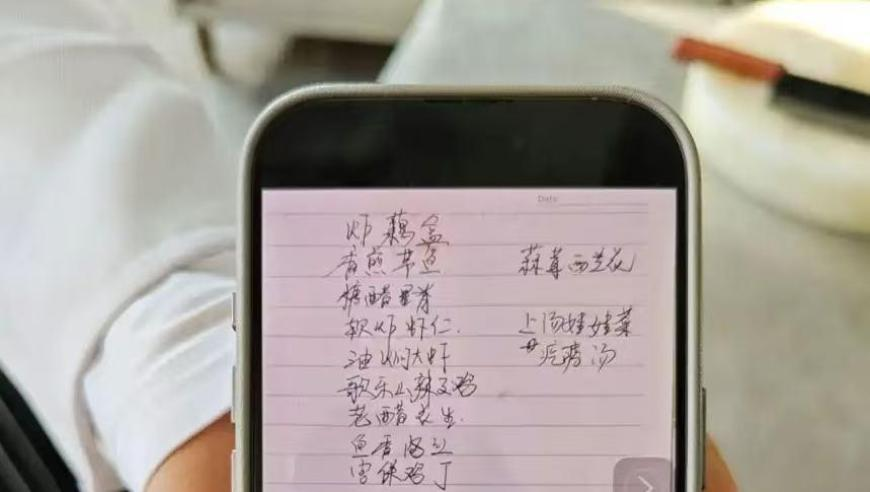 Date
炸藕盒
香煎节鱼
糖醋里脊
软炸虾仁.
油焖大虾
歌乐山辣子鸡
老醋花生.
鱼香肉丝
宫保鸡丁
蒜蓉西兰花
上汤娃娃菜
疙瘩汤